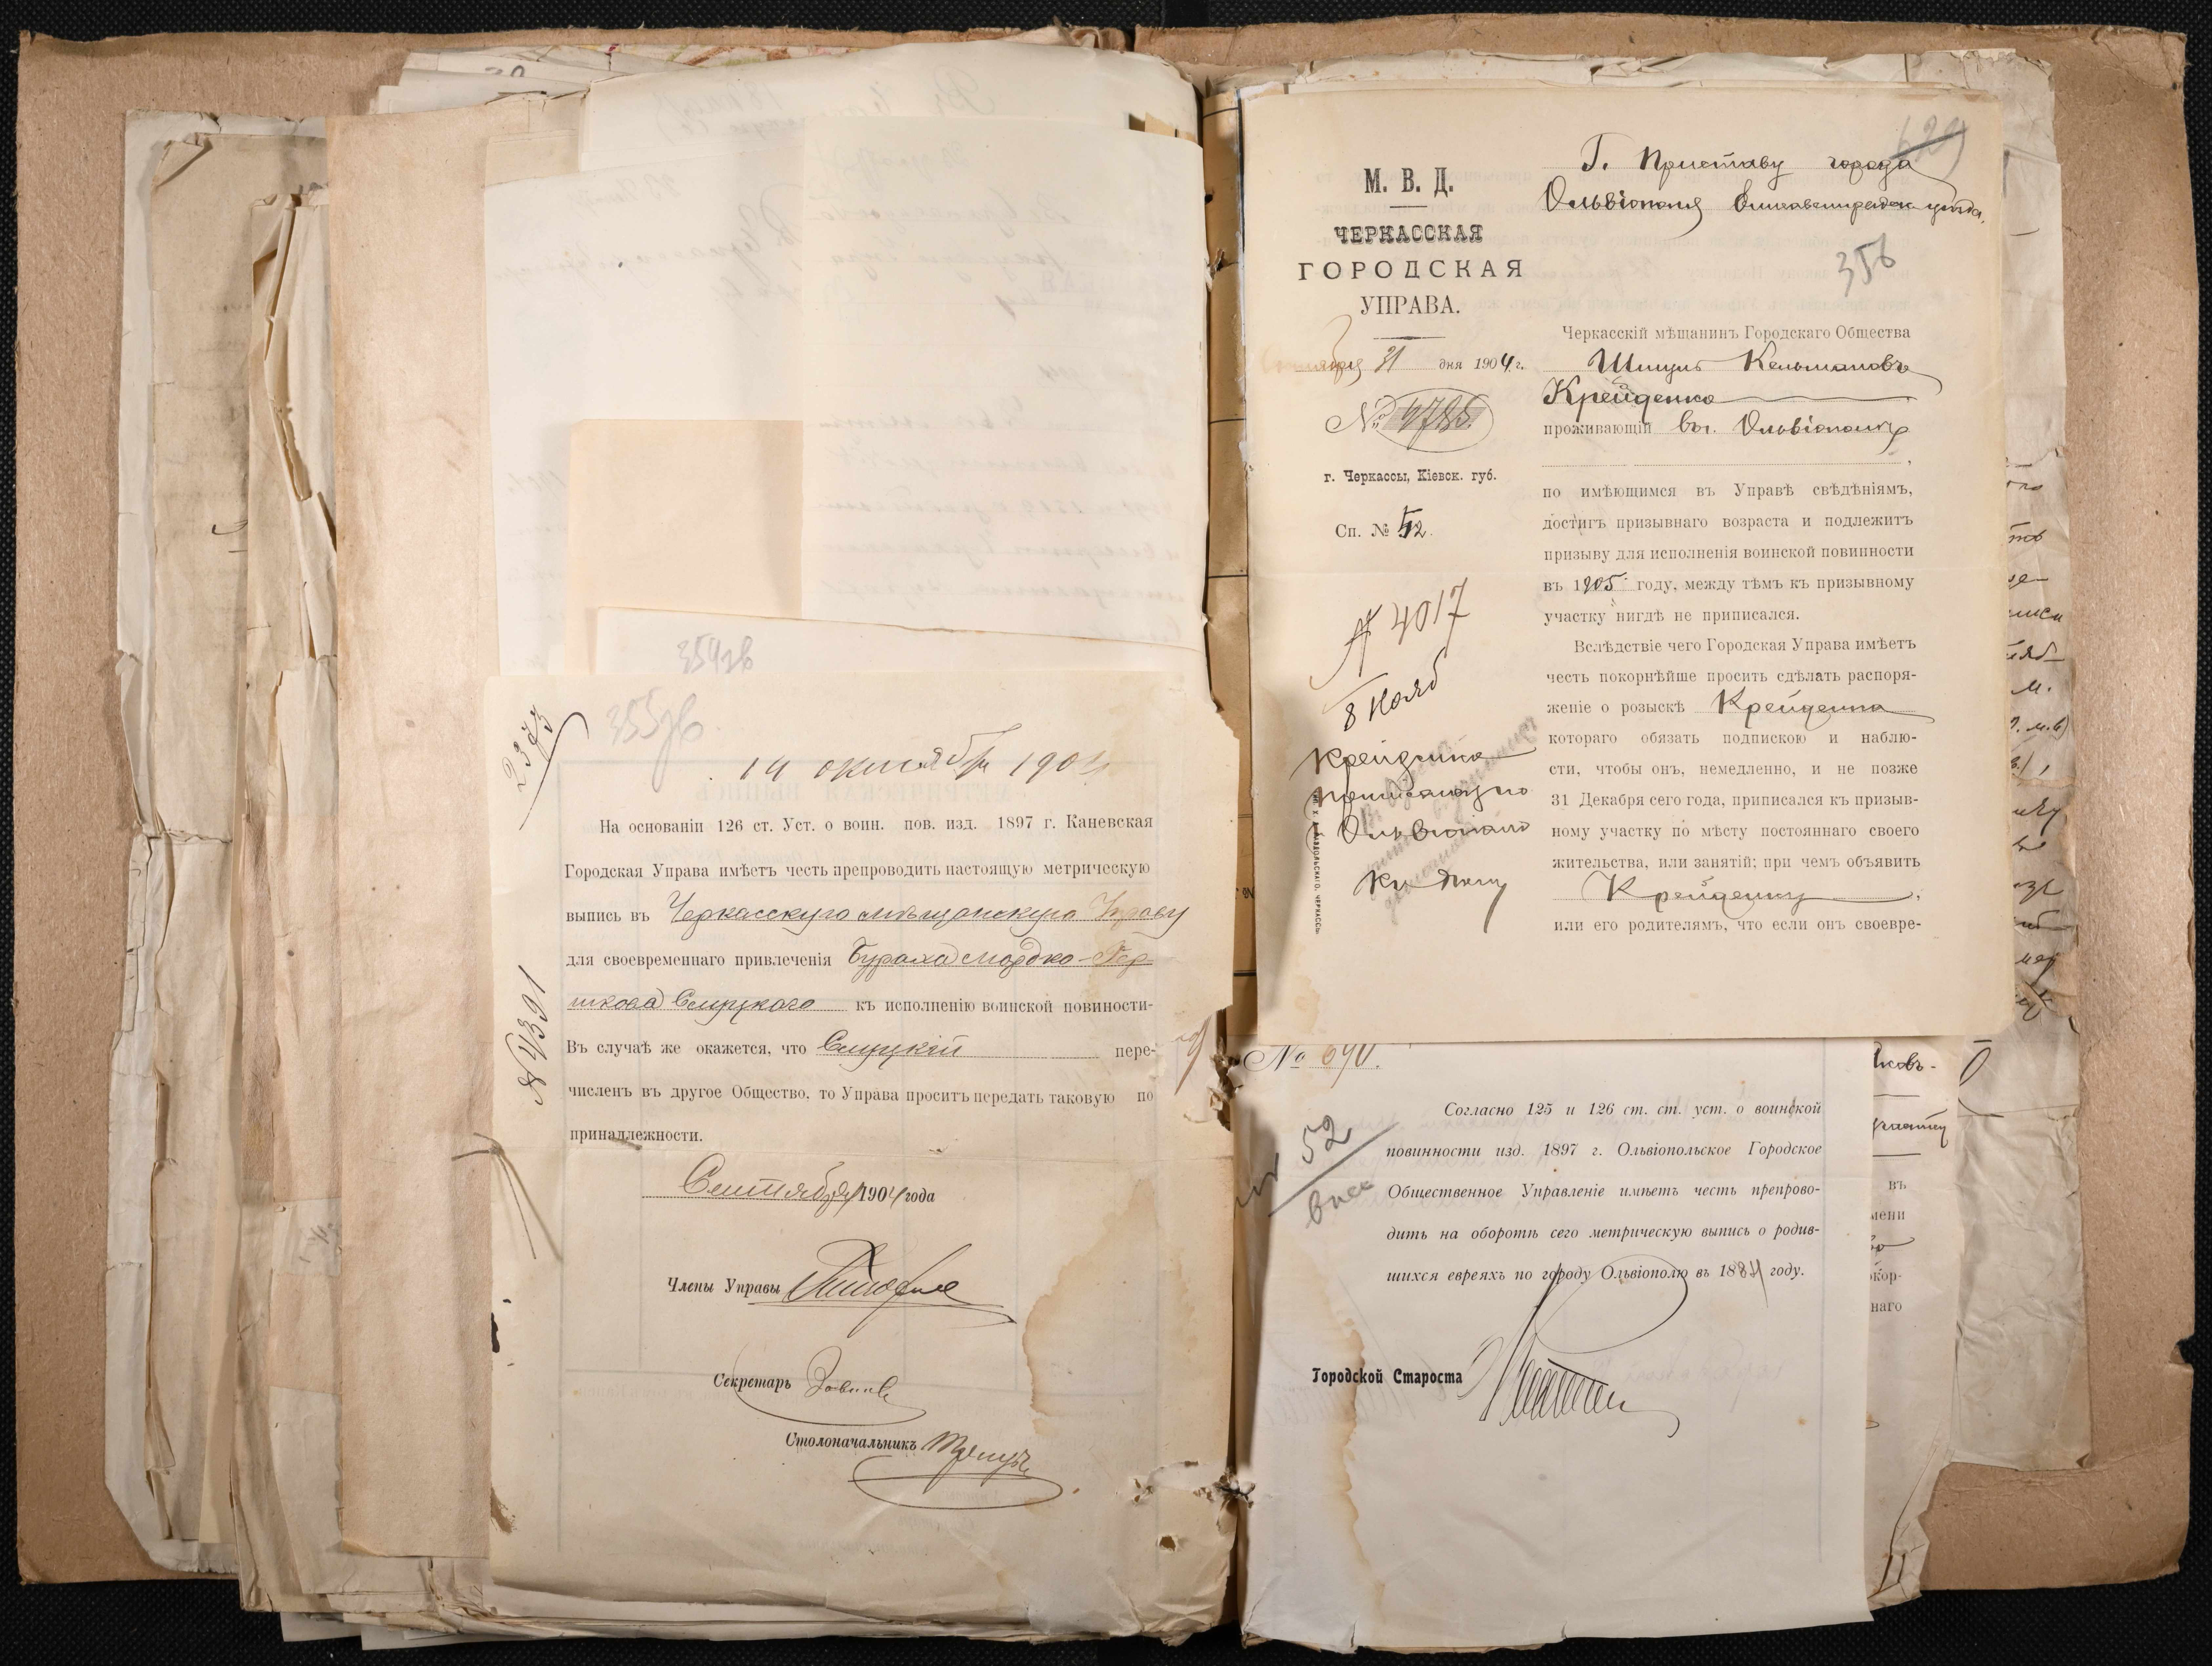 354зв
355зв.
2373
14 октября 1904
На основаніи 126 ст. Уст. о воин. пов. изд. 1897 г. Каневская
Городская Управа имѣетъ честь препроводить настоящую метрическую
выпись въ Черкасскую мѣщанскую Управу
для своевременнаго привлеченія Бураха Мордко-Гер-
шкова Слуцкаго къ исполненію воинской повиности-
Въ случаѣ же окажется, что Слуцкій пере-
численъ въ другое Общество, то Управа проситъ передать таковую по
принадлежности.
№ 4391
Сентября 1904 года
Члены Управы
Секретарь
Столоначальникъ
М. В. Д.
ЧЕРКАССКАЯ
ГОРОДСКАЯ
УПРАВА.
Октября 31 дня 1904 г.
№ 4785
г. Черкассы, Кіевск. губ.
Сп. № 52.
№ 4017
8 Нояб
Крейденко
Приписанъ по
Ольвіополю
629
Г. Приставу города
Ольвіополя Елисаветградск. уѣзда.
356
Черкасскій мѣщанинъ Городскаго Общества
Шмуль Кельмановъ
Крейденко
проживающій въ г. Ольвіополѣ
по имѣющимся въ Управѣ свѣдѣніямъ,
достигъ призывнаго возраста и подлежитъ
призыву для исполненія воинской повинности
въ 1905 году, между тѣмъ къ призывному
участку нигдѣ не приписался.
Вслѣдствіе чего Городская Управа имѣетъ
честь покорнѣйше просить сдѣлать распоря-
женіе о розыскѣ Крейденка
котораго обязать подпискою и наблю-
сти, чтобы онъ, немедленно, и не позже
31 Декабря сего года, приписался къ призыв-
ному участку по мѣсту постояннаго своего
жительства, или занятій; при чемъ объявить
Крейденку,
или его родителямъ, что если онъ своевре-
№ 690.
52
Согласно 125 и 126 ст. ст. уст. о воинской
повинности изд. 1897 г. Ольвіопольское Городское
Общественное Управленіе имѣетъ честь препрово-
дить на оборотѣ сего метрическую выпись о родив-
шихся евреяхъ по городу Ольвіополю въ 1884 году.
Городской Староста